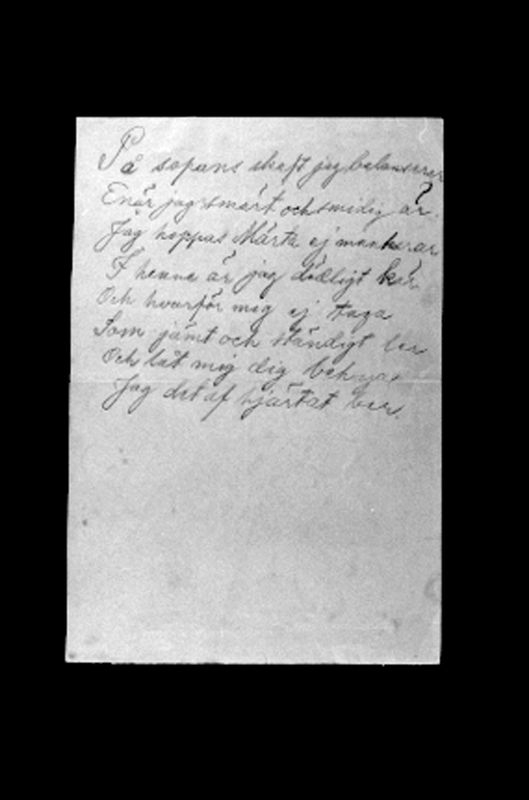 På sopans skaft jag balanserar
Enär jag smärt och smidig är.
Jag hoppas Märta ej mankerar
I henne är jag dödligt kär
Och hvarför mig ej taga
Som jämt och ständigt ler
Och låt mig dig behaga
Jag det af hjärtat ber.